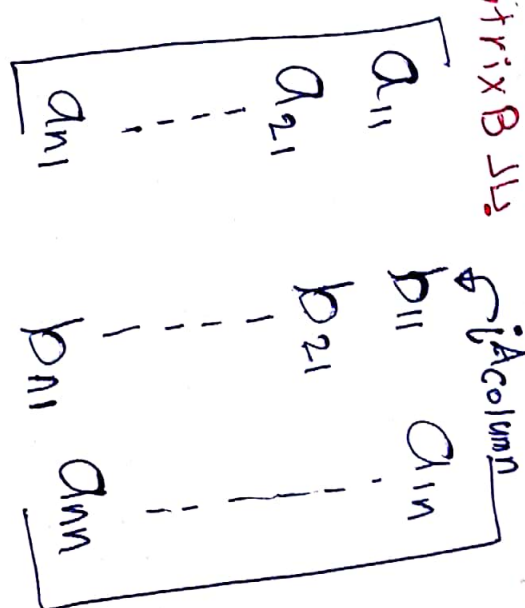 trix B بال
A column
a11 b11 a1n
a21 b21
an1 bn1 ann